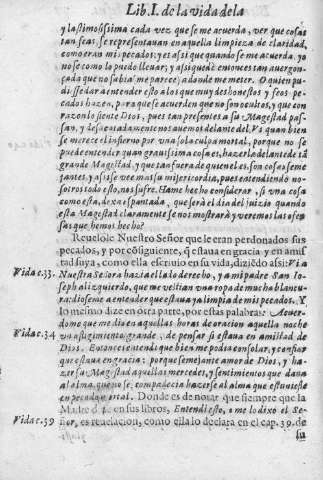 Lib. I. de la vida de la
y lastimosissima cada vez que se me acuerda, ver que cosas
tan feas, se representauan en aquella limpieza de claridad,
como eran mis pecados; y es assi que quando se me acuerda, yo
no se como lo puedo lleuar; y assi quedè entonces tan auergon-
çada que no sabia (me parece) adonde me meter. O quien pu-
diesse dar a entender esto a los que muy deshonestos y feos pe-
cados hazen, para que se acuerden que no son ocultos, y que con
razon lo siente Dios, pues tan presentes a su Magestad pas-
san, y desacatadamente nos auemos delante del. Vi quan bien
se merece el infierno por vna sola culpa mortal, porque no se
puede entender quan grauissima cosa es, hazerlo delante de tã
grande Magestad, y que tan fuera de quien el es, son cosas seme
jantes, y assi se ve mas su misericordia, pues entendiendo no-
sotros todo esto, nos sufre. Hame hecho considerar, si vna cosa
como esta, dexa espantada, que serà el dia del juizio quando
esta Magestad claramente se nos mostrarà y veremos las ofen
sas que hemos hecho?
Reuelole Nuestro Señor que le eran perdonados sus
pecados, y por cõsiguiente, q̃ estaua en gracia y en amis
tad suya, como ella escriuio en su vida, diziẽdo assi: Via
Vida c. 33. Nuestra Señora hazia el lado derecho, y a mi padre San Io-
seph al izquierdo, que me vestian vna ropa de mucha blancu-
ra: dioseme a entender que estaua ya limpia de mis pecados. Y
lo mesmo dize en otra parte, por estas palabras: Acuer-
dome que me dio en aquellas horas de oracion aquella noche
Vida c. 34 vn afligimiento grande, de pensar si estaua en amistad de
Dios. Entonces entendi que bien me podia consolar, y confiar
que estaua en gracia: porque semejante amor de Dios, y ha-
zer su Magestad aquellas mercedes, y sentimientos que daua
al alma, que no se compadecia hazerse al alma que estuuiesse
en pecado mortal. Donde es de notar que siempre que la
Madre en sus libros, Entendi esto, o me lo dixo el Se-
Vida c. 39 ñor, es reuelacion, como ella lo declara en el cap. 39. de
su